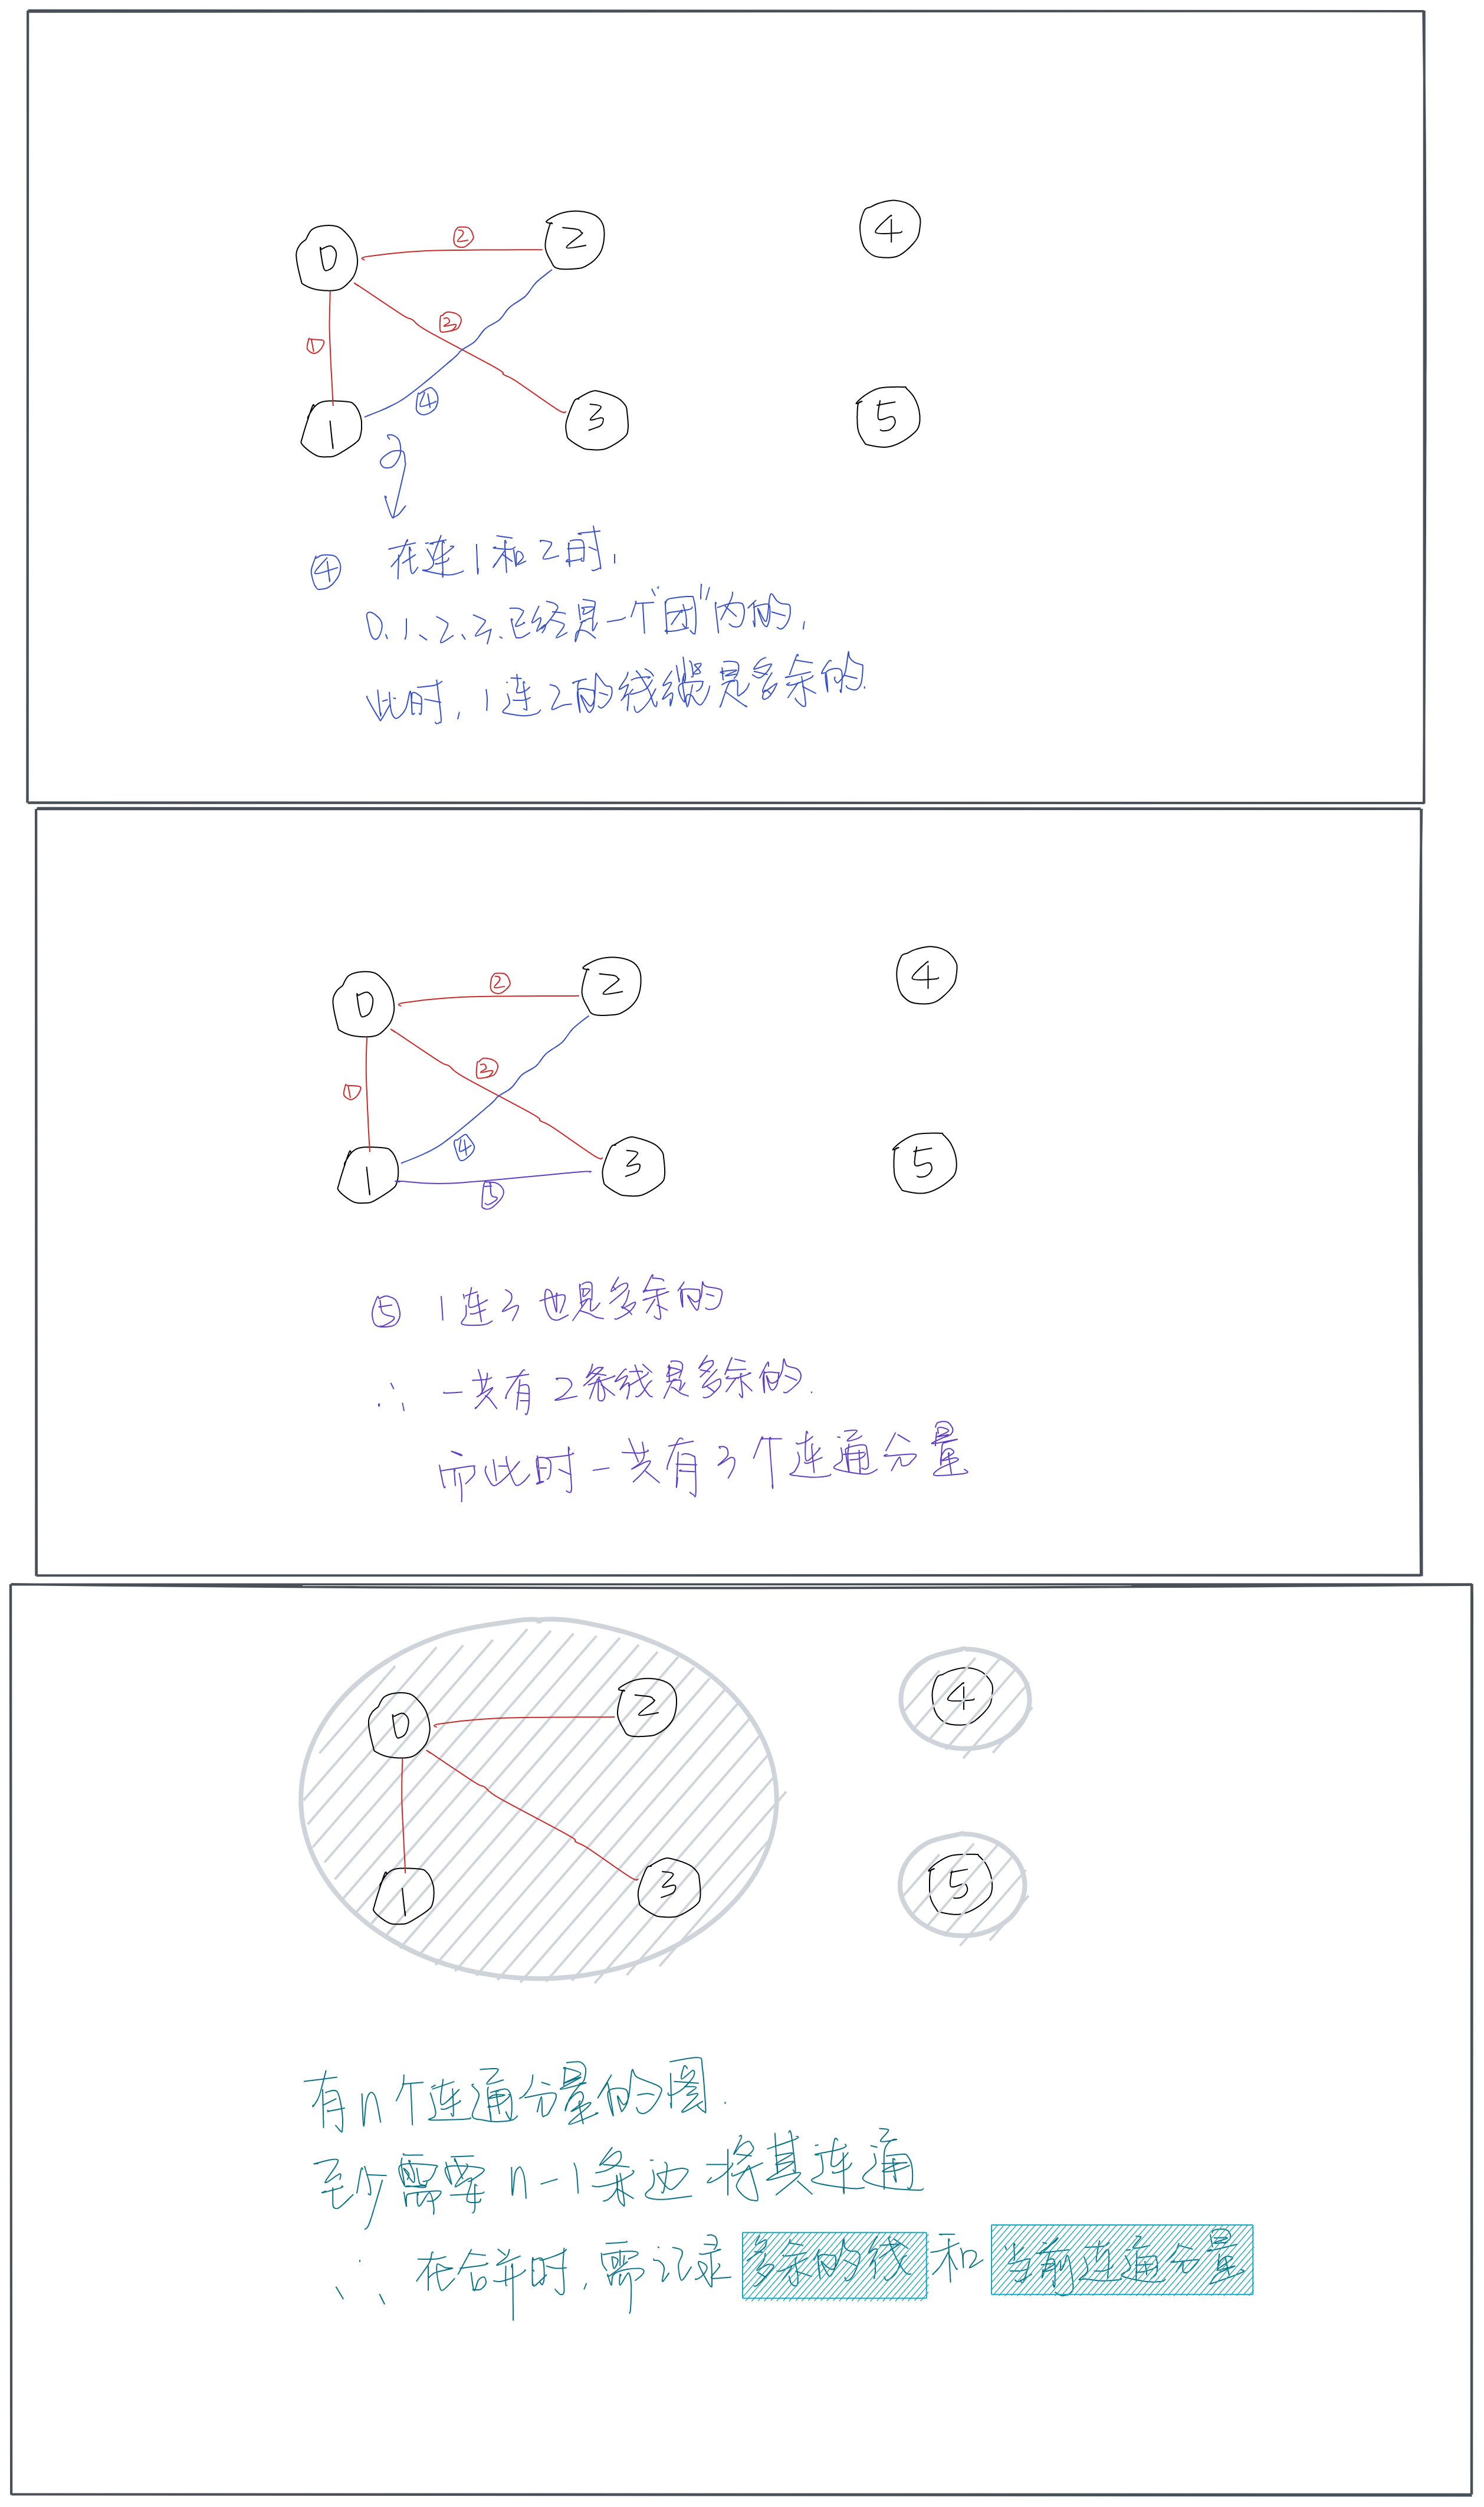 0 ② 2 4
③
①
④
1 3 5
④ 在连1和2时,
0.1.2.3.已经是一个"团"内的,
此时,1连2的线缆是多余的.
0 ② 2 4
③
①
④
1 ⑤ 3 5
⑤ 1连3也是多余的
∴ 一共有2条线是多余的.
而此时一共有3个连通分量
0 2 4
1 3 5
有n个连通分量的图.
至少需要n-1条边将其连通
∴ 在合并时.需记录多余的线和当前连通分量